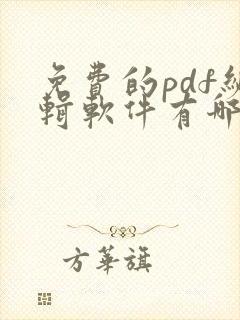 免費的pdf編
輯軟件有哪
方華旗